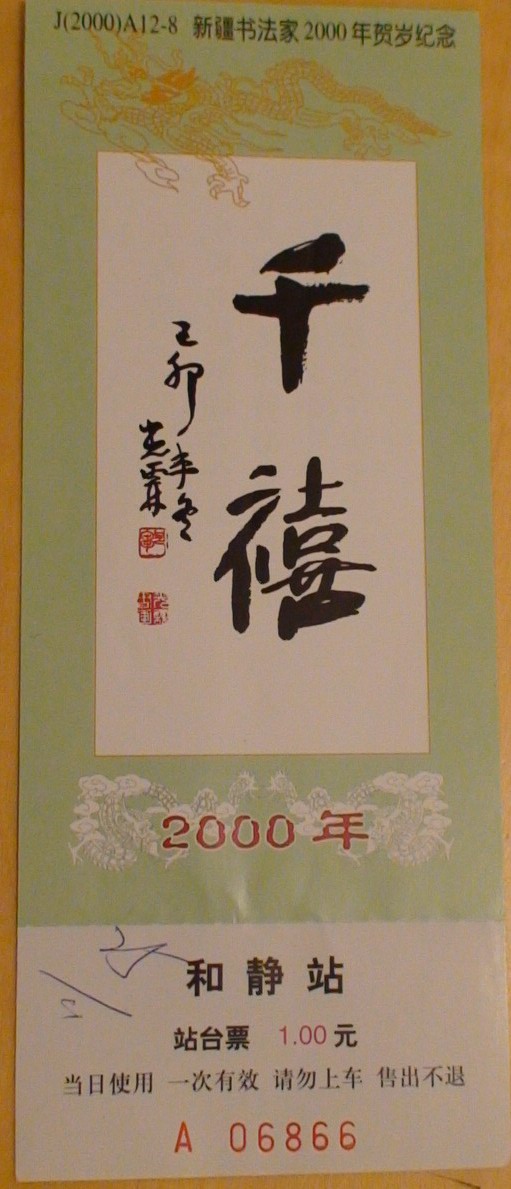 J(2000)A12-8 新疆书法家2000年贺岁纪念
千禧
己卯年冬
2000年
和静站
站台票 1.00元
当日使用 一次有效 请勿上车 售出不退
A 06866